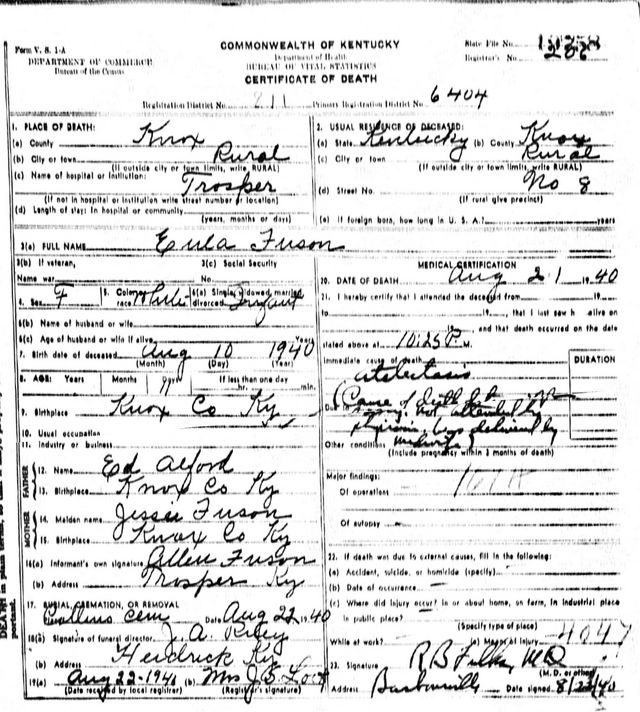 Form V. S. 1-A
DEPARTMENT OF COMMERCE
Bureau of the Census
COMMONWEALTH OF KENTUCKY
Department of Health
BUREAU OF VITAL STATISTICS
CERTIFICATE OF DEATH
State File No.
Registrar's No.
Registration District No. 211 Primary Registration District No. 6404
1. PLACE OF DEATH:
(a) County Knox
(b) City or town Rural
(If outside city or town limits, write RURAL)
(c) Name of hospital or institution: Trosper
(If not in hospital or institution write street number or location)
(d) Length of stay: In hospital or community
(years, months or days)
2. USUAL RESIDENCE OF DECEASED:
(a) State Kentucky (b) County Knox
(c) City or town Rural
(If outside city or town limits, write RURAL)
(d) Street No. No 8
(If rural give precinct)
(e) If foreign born, how long in U. S. A.? years
3(a) FULL NAME Eula Fuson
3(b) If veteran, 3(c) Social Security
Name war No.
4. Sex F 5. Color or race White 6(a) Single, widowed, married, divorced Infant
6(b) Name of husband or wife
6(c) Age of husband or wife if alive Years
7. Birth date of deceased Aug 10 1940
(Month) (Day) (Year)
8. AGE: Years Months Days If less than one day
hr. min.
9. Birthplace Knox Co Ky
10. Usual occupation
11. Industry or business
FATHER
12. Name Ed Alford
13. Birthplace Knox Co Ky
MOTHER
14. Maiden name Jessie Fuson
15. Birthplace Knox Co Ky
16(a) Informant's own signature Allen Fuson
(b) Address Trosper Ky
17. BURIAL, CREMATION, OR REMOVAL
Collins Cem (b) Date Aug 22 1940
18(a) Signature of funeral director J. A. Riley
(b) Address Heidrick Ky
19(a) Aug 22-1940 (b) Mrs J B
(Date received by local registrar) (Registrar's signature)
MEDICAL CERTIFICATION
20. DATE OF DEATH Aug 21 1940
21. I hereby certify that I attended the deceased from 19
to 19 , that I last saw h alive on
, and that death occurred on the date
stated above at 10:25 P. M.
Immediate cause of death DURATION
atelectasis
Due to
(Cause of death
not attended by
physician. Was delivered by
Other conditions midwife)
(Include pregnancy within 3 months of death)
Major findings:
Of operations
Of autopsy
22. If death was due to external causes, fill in the following:
(a) Accident, suicide, or homicide (specify)
(b) Date of occurrence
(c) Where did injury occur? In or about home, on farm, in industrial place
in public place?
(Specify type of place)
While at work? (e) Means of injury 4047
23. Signature R B MD
(M. D. or other)
Address Barbourville Date signed 8/22/40
DEATH in plain terms,